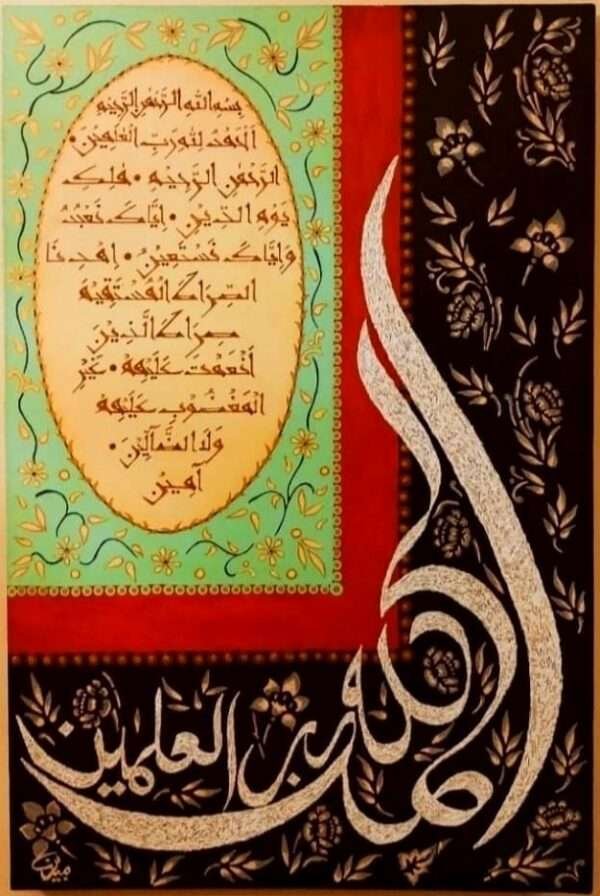 بِسْمِ اللهِ الرَّحْمٰنِ الرَّحِيْمِ
اَلْحَمْدُ لِلّٰهِ رَبِّ الْعٰلَمِيْنَ •
الرَّحْمٰنِ الرَّحِيْمِ • مٰلِكِ
يَوْمِ الدِّيْنِ • اِيَّاكَ نَعْبُدُ
وَاِيَّاكَ نَسْتَعِيْنُ • اِهْدِنَا
الصِّرَاطَ الْمُسْتَقِيْمَ
صِرَاطَ الَّذِيْنَ
اَنْعَمْتَ عَلَيْهِمْ • غَيْرِ
الْمَغْضُوْبِ عَلَيْهِمْ
وَلَا الضَّآلِّيْنَ •
آمِيْنْ
الحمد لله رب العلمين